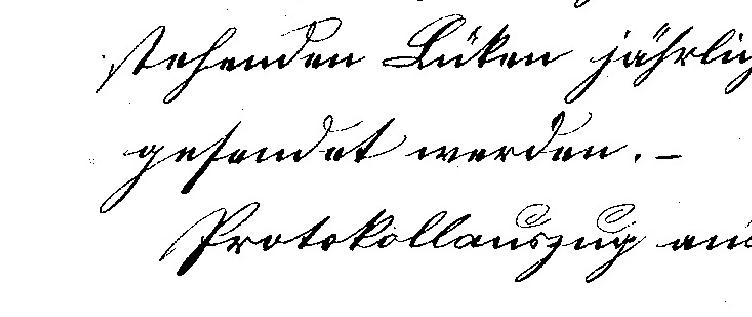 stehenden Lüken jährlich
gesendet werden. –
Protokollauszug an